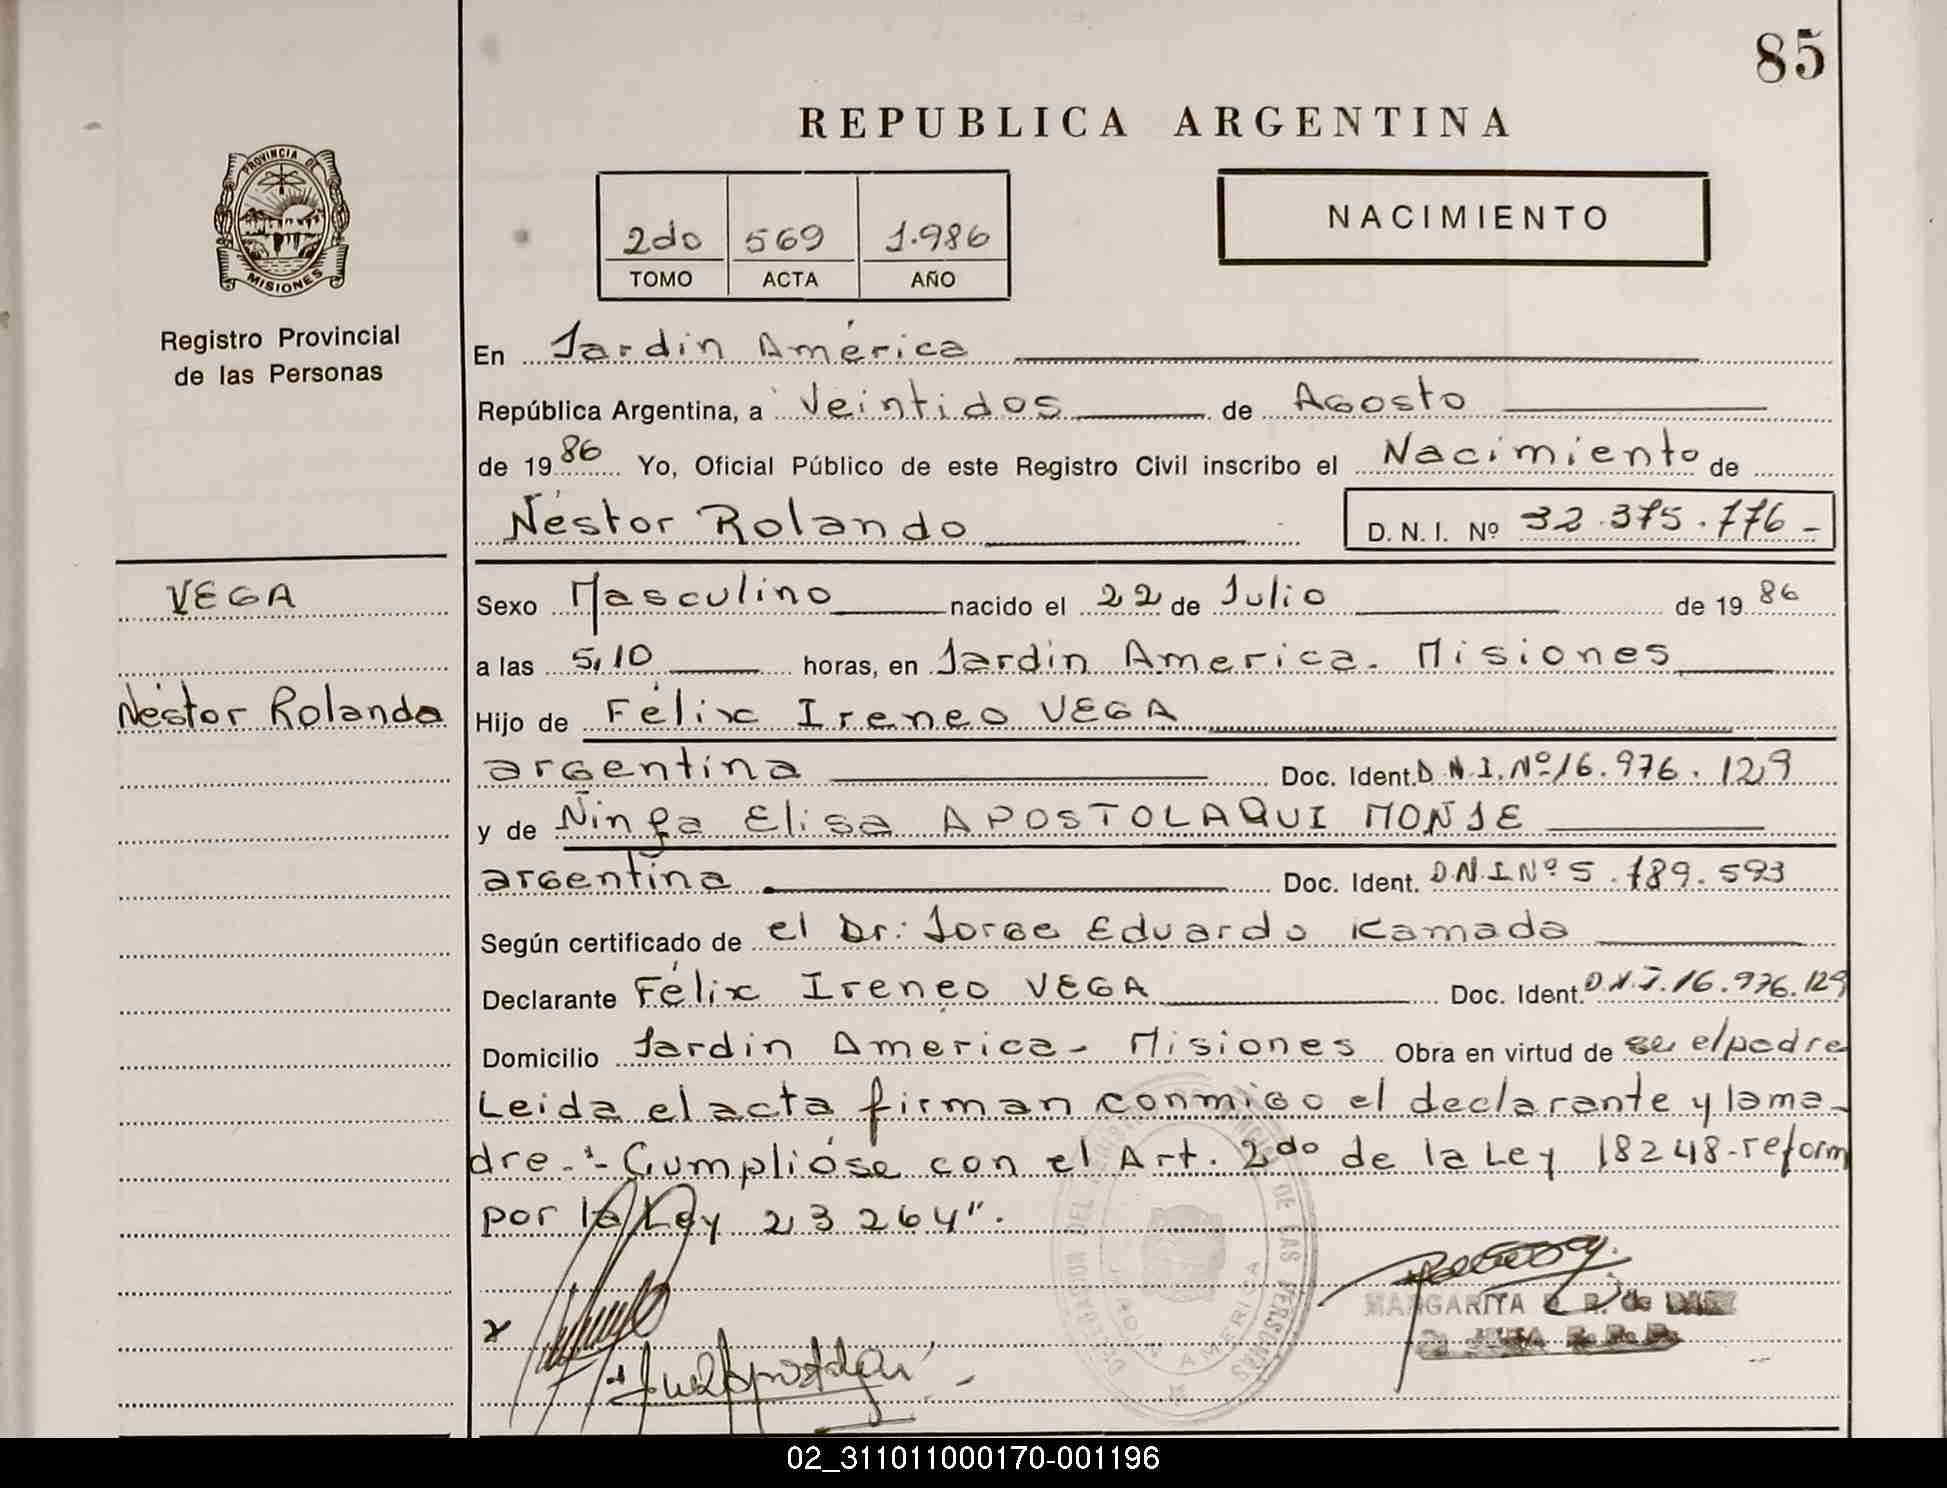 85
REPUBLICA ARGENTINA
PROVINCIA DE
MISIONES
Registro Provincial
de las Personas
2do 569 1.986
TOMO ACTA AÑO
NACIMIENTO
En Jardin América
República Argentina, a Veintidos de Agosto
de 1986 Yo, Oficial Público de este Registro Civil inscribo el Nacimiento de
Néstor Rolando D. N. I. Nº 32.375.776-
VEGA
Néstor Rolando
Sexo Masculino nacido el 22 de Julio de 1986
a las 5,10 horas, en Jardin America. Misiones
Hijo de Félix Ireneo VEGA
argentina Doc. Ident. D.N.I. Nº 16.976.129
y de Ninfa Elisa APOSTOLAQUI MONJE
argentina Doc. Ident. D.N.I Nº 5.789.593
Según certificado de el Dr: Jorge Eduardo Kamada
Declarante Félix Ireneo VEGA Doc. Ident. D.N.I.16.976.129
Domicilio Jardin America- Misiones Obra en virtud de se el padre
Leida el acta firman conmigo el declarante y la ma-
dre.- "Cumplióse con el Art. 2do de la Ley 18248-reform
por la Ley 23264".
DE LAS PERSONAS
AMERICA
MARGARITA R. de
02_311011000170-001196